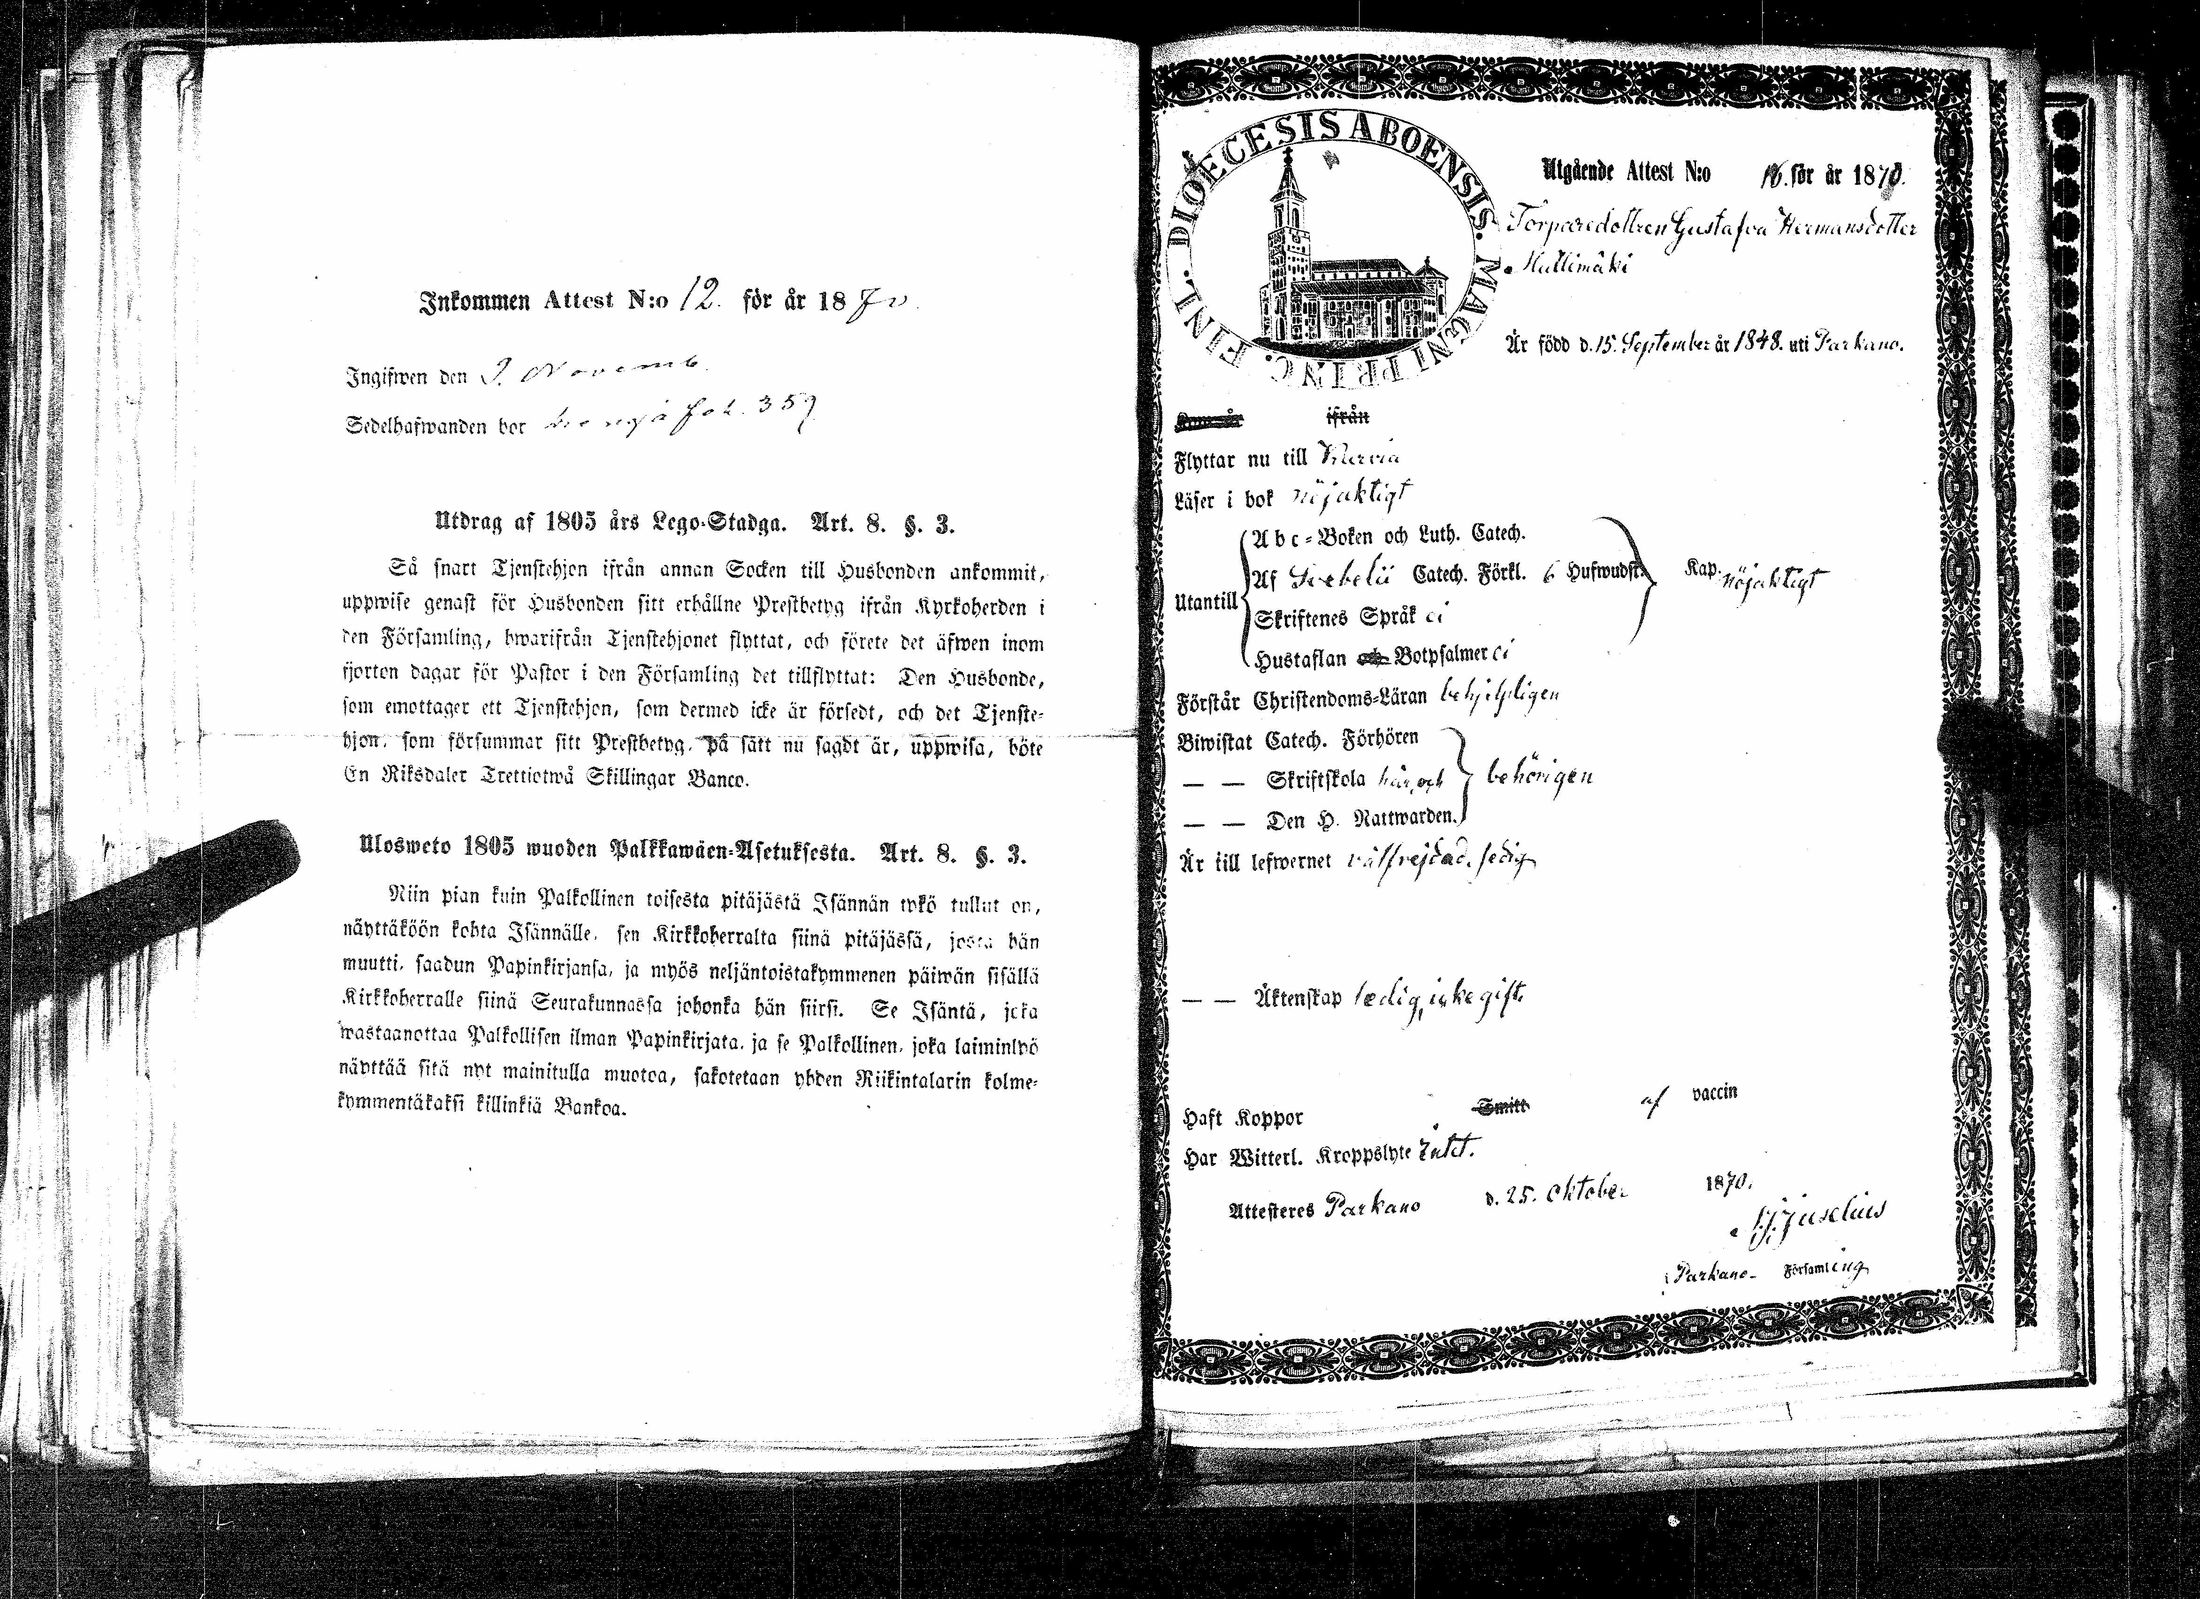 Inkommen Attest N:o 12. för år 1870.
Ingifwen den 2. Novemb.
Sedelhafwanden bor fol. 359
Utdrag af 1805 års Lego-Stadga. Art. 8. §. 3.
Så snart Tjenstehjon ifrån annan Socken till Husbonden ankommit,
uppwise genast för Husbonden sitt erhållne Prestbetyg ifrån Kyrkoherden i
den Församling, hwarifrån Tjenstehjonet flyttat, och förete det äfwen inom
fjorton dagar för Pastor i den Församling det tillflyttat: Den Husbonde,
som emottager ett Tjenstehjon, som dermed icke är försedt, och det Tjenste-
hjon, som försummar sitt Prestbetyg, på sätt nu sagdt är, uppwisa, böte
En Riksdaler Trettiotwå Skillingar Banco.
Ulosweto 1805 wuoden Palkkawäen-Asetuksesta. Art. 8. §. 3.
Niin pian kuin Palkollinen toisesta pitäjästä Isännän tykö tullut on,
näyttäköön kohta Isännälle, sen Kirkkoherralta siinä pitäjässä, josta hän
muutti, saadun Papinkirjansa, ja myös neljäntoistakymmenen päiwän sisällä
Kirkkoherralle siinä Seurakunnassa johonka hän siirsi. Se Isäntä, joka
wastaanottaa Palkollisen ilman Papinkirjata, ja se Palkollinen, joka laiminlyö
näyttää sitä nyt mainitulla muotoa, sakotetaan yhden Riikintalarin kolme-
kymmentäkaksi killinkiä Bankoa.
DIOECESIS ABOENSIS. MAGNI PRINC. FINL.
Utgående Attest N:o 16. för år 1870.
Torparedottren Gustafva Hermansdotter
Mullimäki
Är född d. 15. September år 1848. uti Parkano.
ifrån
Flyttar nu till Karvia
Läser i bok nöjaktigt
Utantill
Abc-Boken och Luth. Catech.
Af Svebelii Catech. Förkl. 6 Hufwudst. Kap. nöjaktigt
Skriftenes Språk ei
Hustaflan och Botpsalmer ei
Förstår Christendoms-Läran behjelpligen
Biwistat Catech. Förhören
— — Skriftskola här, och behörigen
— — Den H. Nattwarden.
Är till lefwernet välfrejdad, ledig
— — Äktenskap ledig, icke gift.
Haft Koppor Smitt af vaccin
Har Witterl. Kroppslyte Intet.
Attesteres Parkano d. 25. Oktober 1870.
Juselius
i Parkano Församling